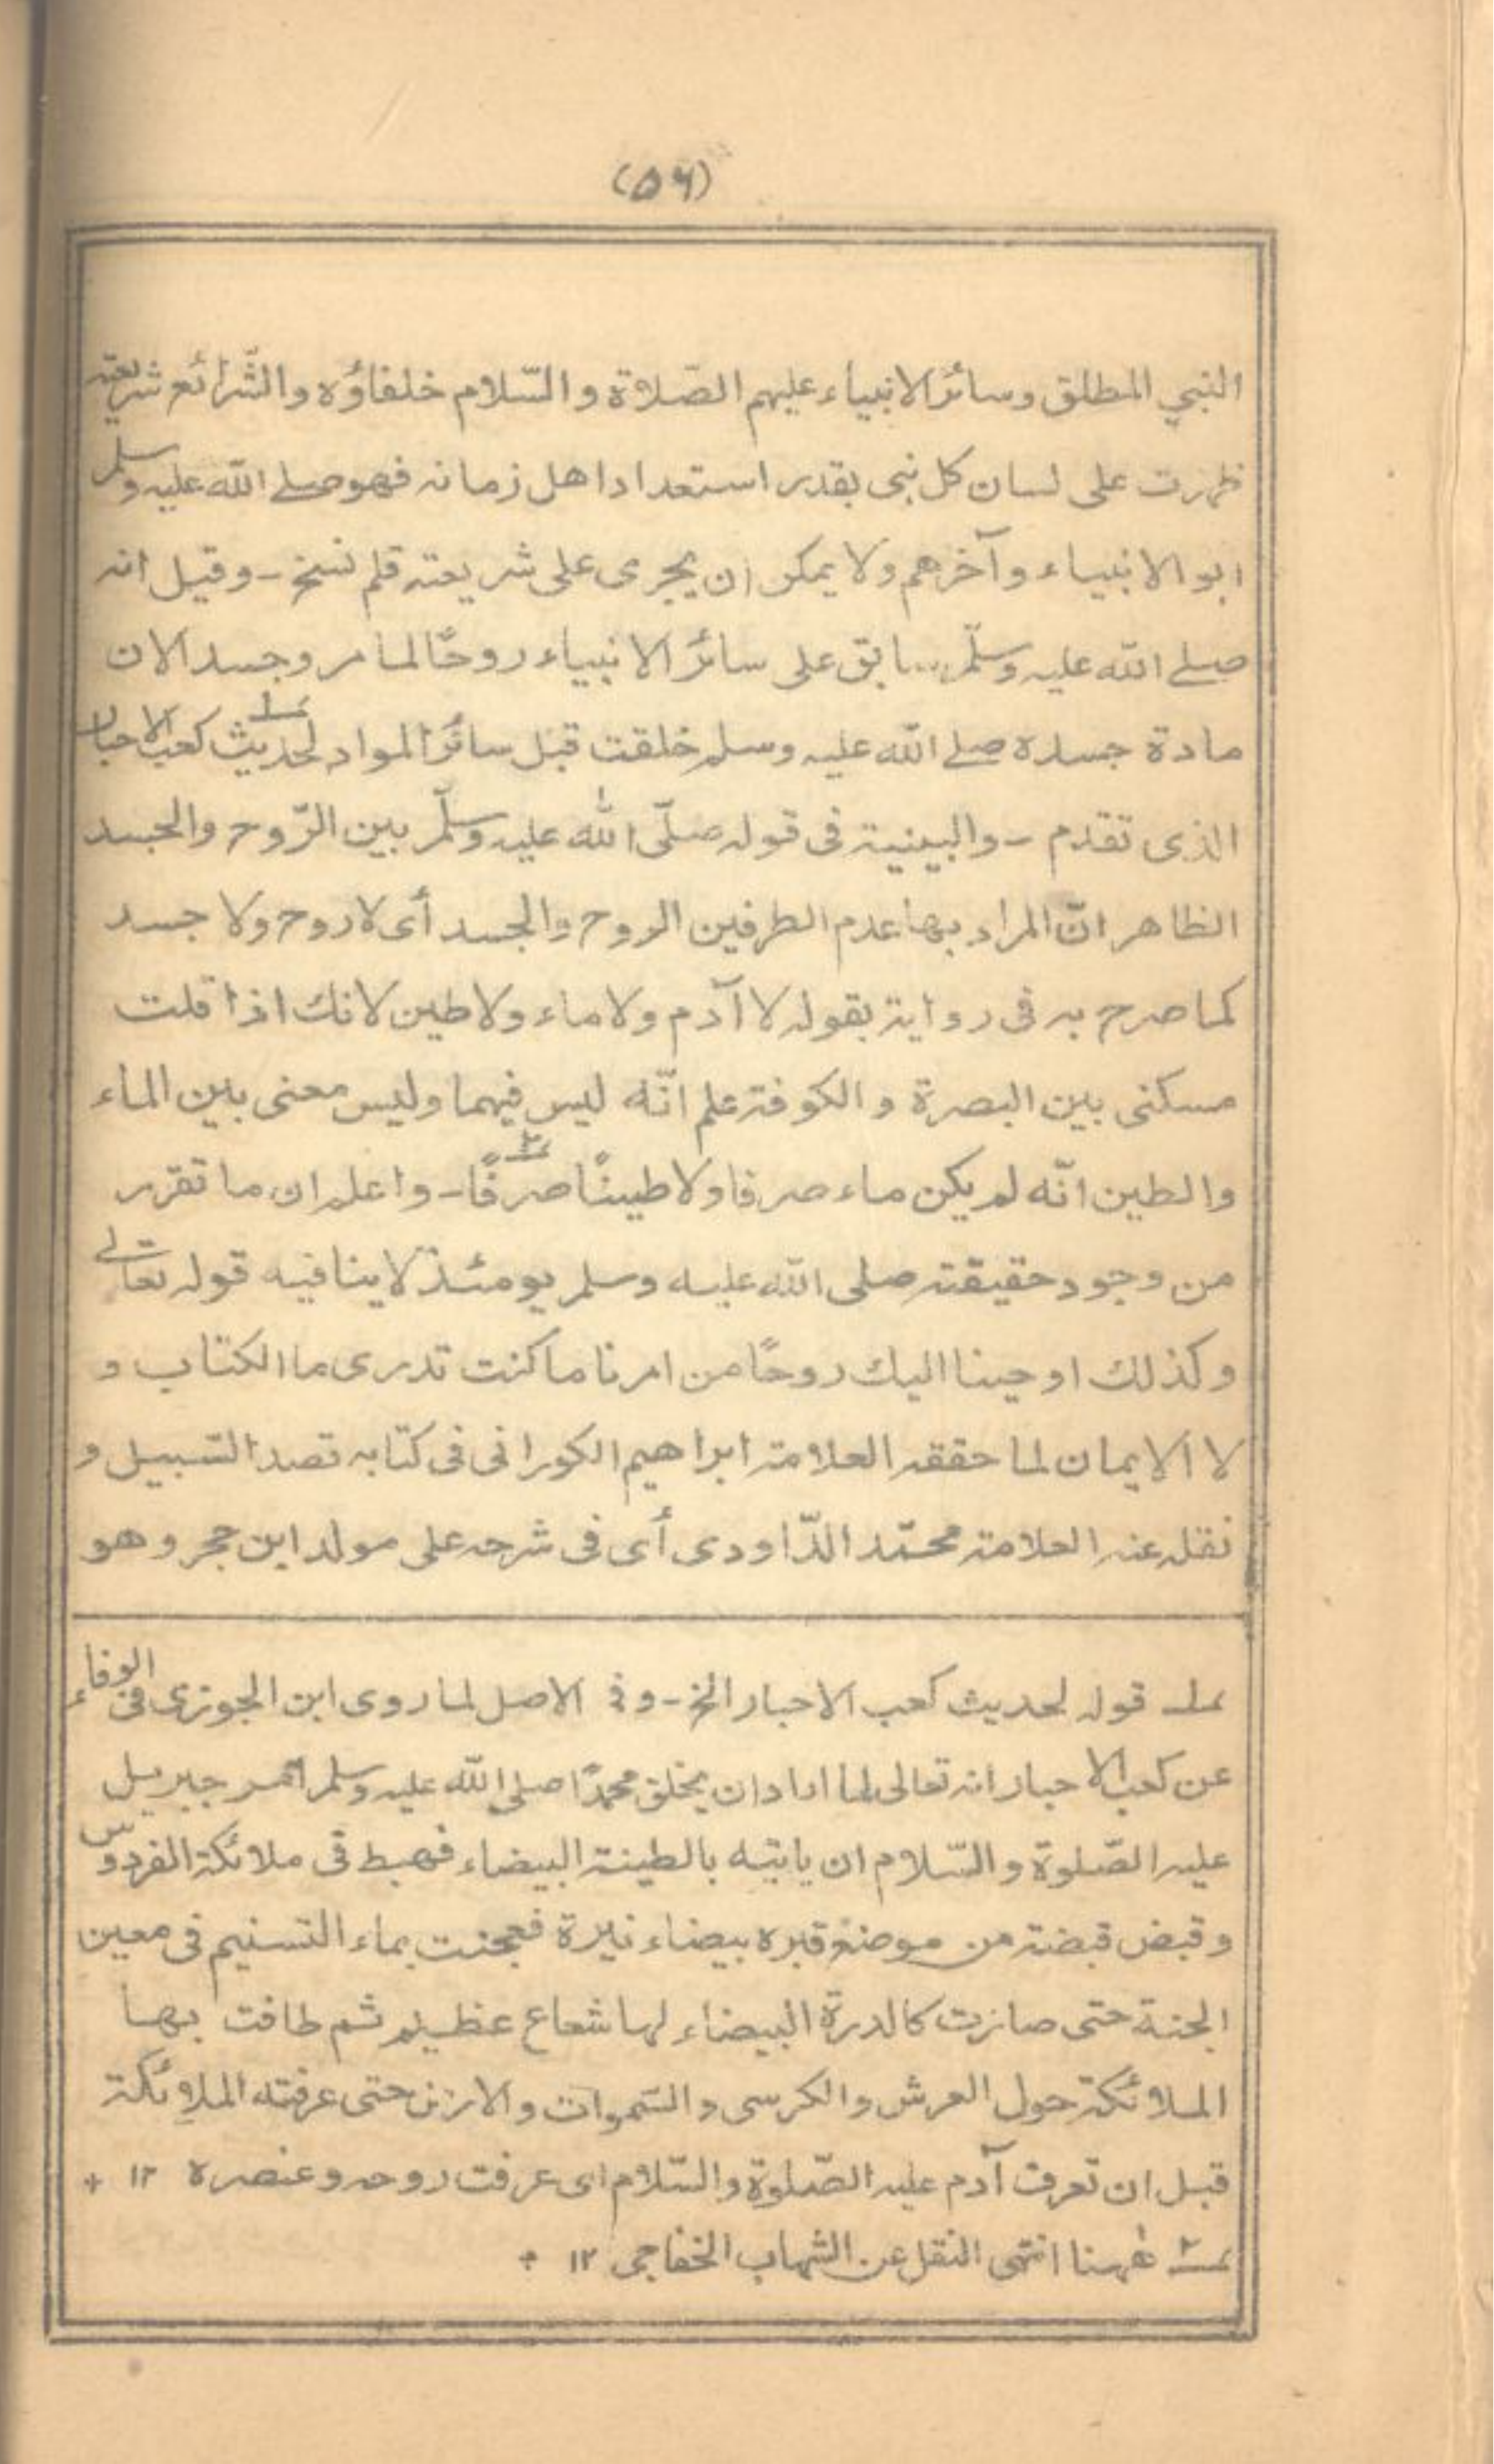 (۵۶)
النبي المطلق وسائر الانبياء عليهم الصّلاة والسّلام خلفاؤه والشّرائع شريعته
ظهرت على لسان كل نبى بقدر استعداد اهل زمانه فهو صلے الله عليه وسلم
ابو الانبياء وآخرهم ولا يمكن ان يجرى على شريعته قلم نسخ - وقيل انه
صلے الله عليه وسلّم سابق على سائر الانبياء روحًا لما مر وجسد الان
مادة جسده صلے الله عليه وسلم خلقت قبل سائر المواد لحديث ۱ كعب الاحبار
الذى تقدم - والبينية فى قوله صلّى الله عليه وسلّم بين الرّوح والجسد
الظاهر انّ المراد بها عدم الطرفين الروح والجسد أى لا روح ولا جسد
كما صرح به فى رواية بقوله لا آدم ولا ماء ولا طين لانك اذا قلت
مسكنى بين البصرة والكوفة علم انّه ليس فيهما وليس معنى بين الماء
والطين انّه لم يكن ماء صرفا ولا طينًا صرفًا ۲ - واعلم ان ما تقرر
من وجود حقيقته صلى الله عليه وسلم يومئذ لا ينافيه قوله تعالے
وكذلك اوحينا اليك روحًا من امرنا ما كنت تدرى ما الكتاب و
لا الايمان لما حققه العلامة ابراهيم الكورانى فى كتابه قصد السّبيل و
نقله عنه العلامة محمّد الدّاودى أى فى شرحه على مولد ابن حجر وهو
۱ قوله لحديث كعب الاحبار الخ - وفى الاصل لما روى ابن الجوزى فى الوفاء
عن كعب الاحبار انه تعالى لما اراد ان يخلق محمدًا صلى الله عليه وسلم امر جبريل
عليه الصّلوة والسّلام ان ياتيه بالطينة البيضاء فهبط فى ملائكة الفردوس
وقبض قبضة من موضع قبره بيضاء نيرة فعجنت بماء التسنيم فى معين
الجنة حتى صارت كالدرة البيضاء لها شعاع عظيم ثم طافت بها
الملائكة حول العرش والكرسى والسّموات والارض حتى عرفته الملائكة
قبل ان تعرف آدم عليه الصّلوة والسّلام اى عرفت روحه وعنصره ۱۲ +
۲ ههنا انتهى النقل عن الشهاب الخفاجى ۱۲ +